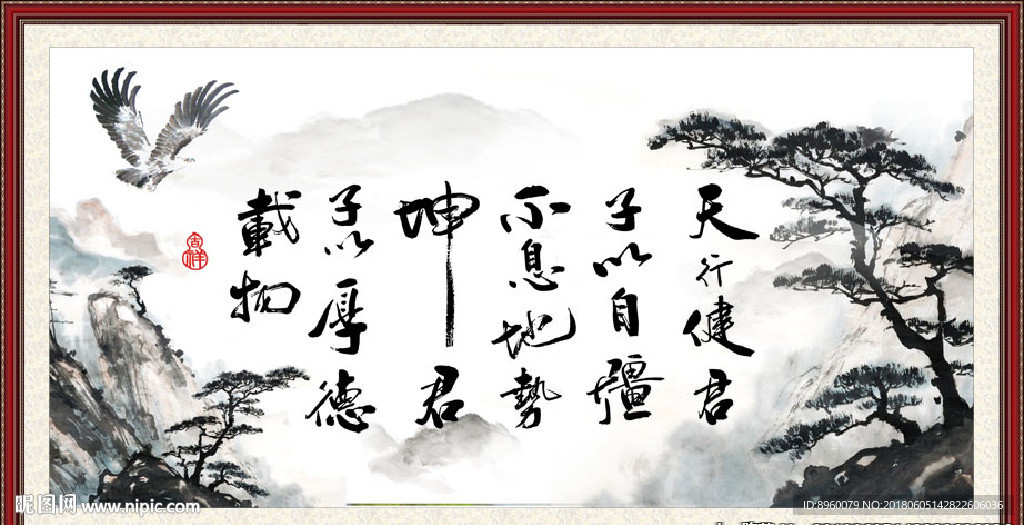 天行健君
子以自彊
不息地勢
坤君
子以厚德
載物
吉祥
昵图网 www.nipic.com
ID:8960079 NO:20180605142822606036